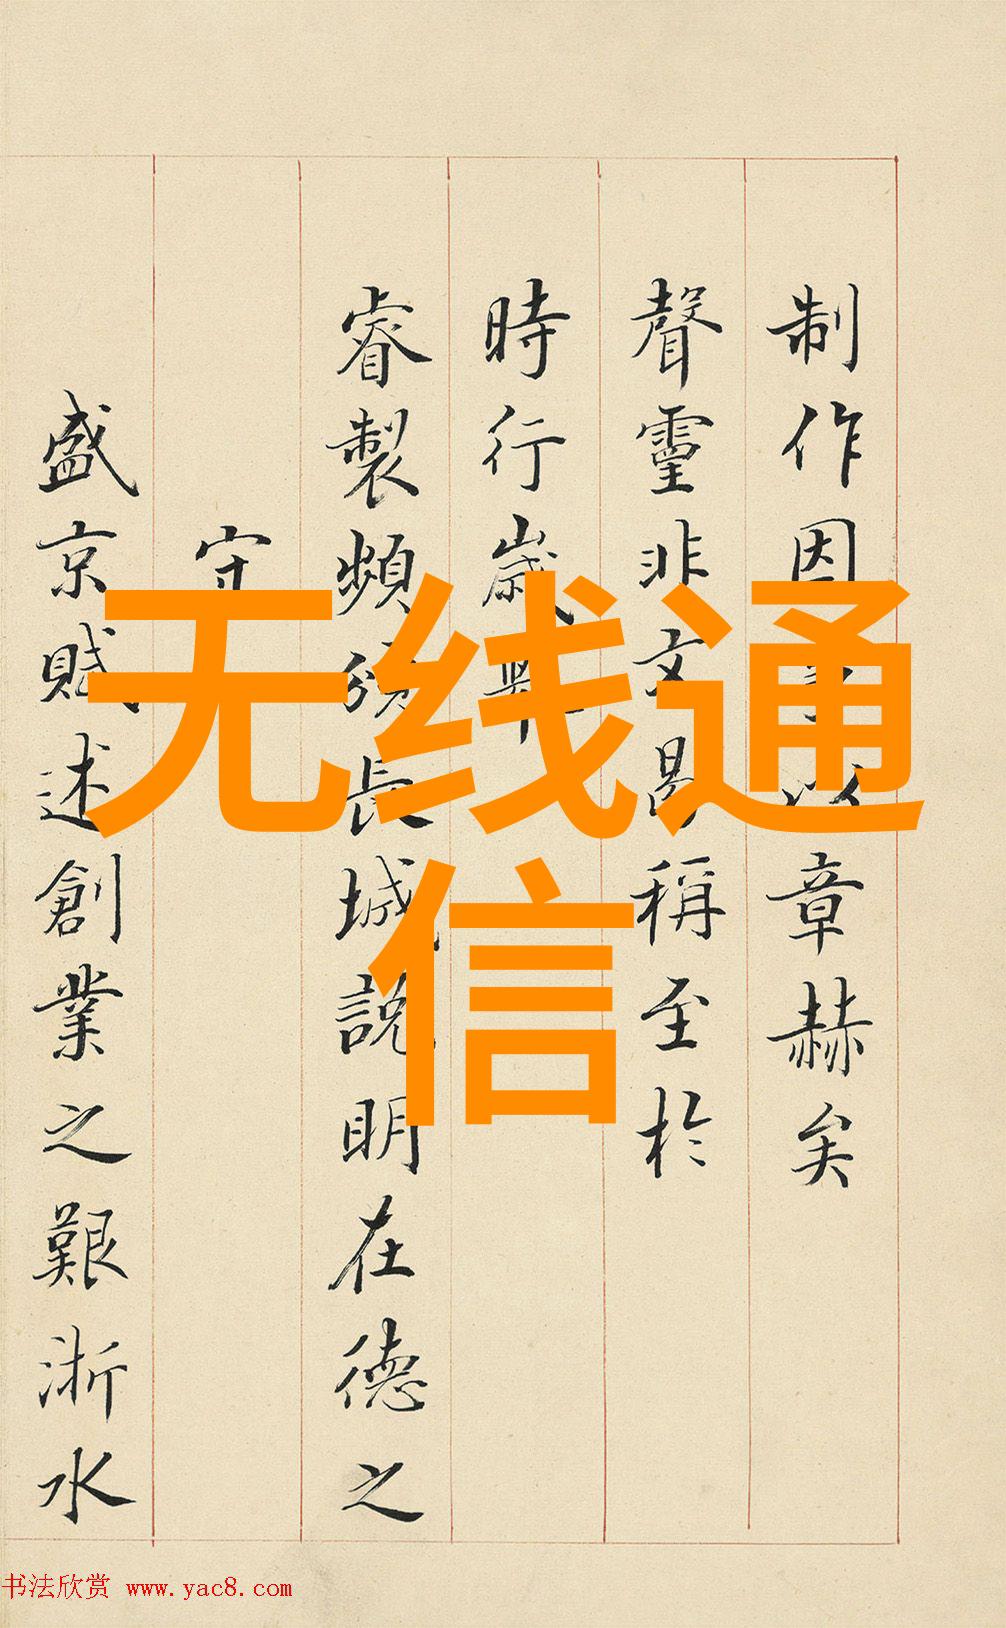 制作因以章赫矣
聲靈非文曷稱至於
時行歲
睿製頻頒長城說明在德之
守
盛京賦述創業之艱浙水
无线通
信
书法欣赏 www.yac8.com